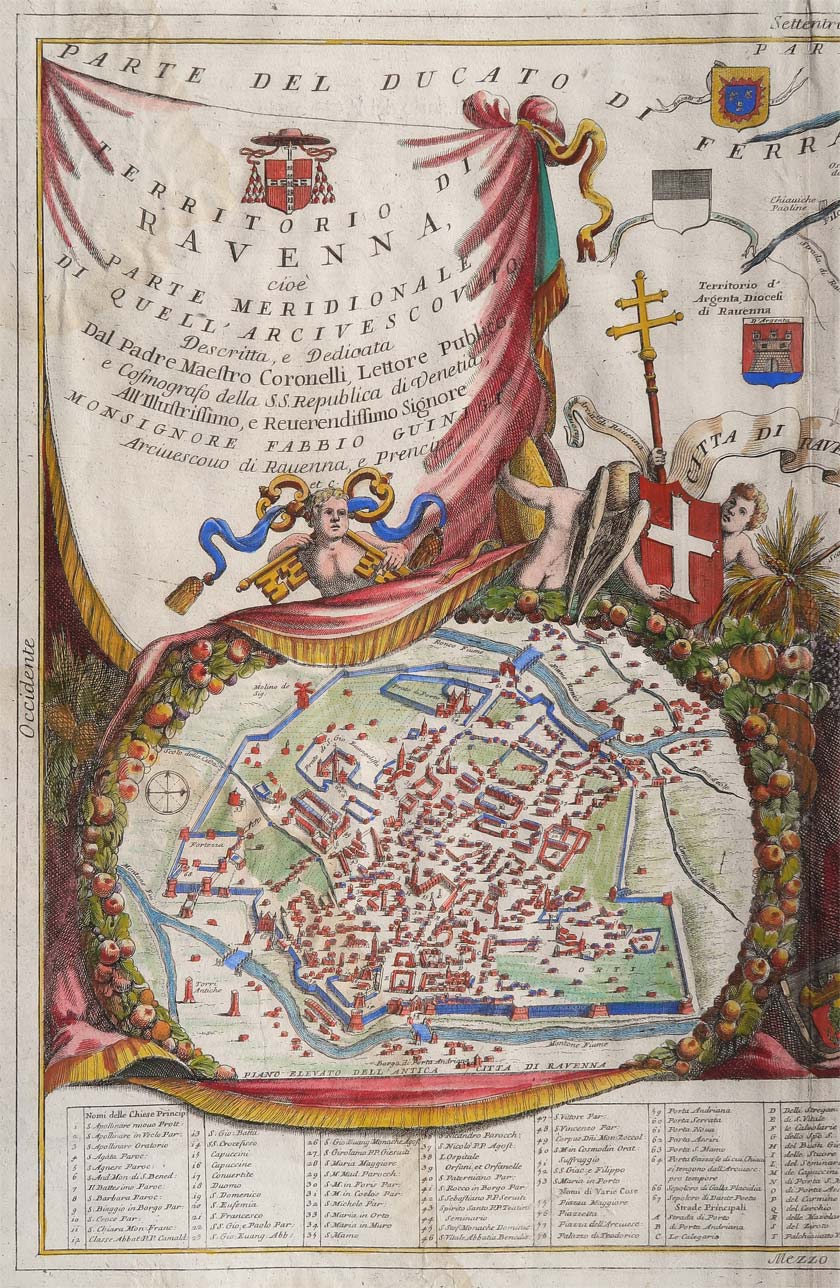 Settentri
PARTE DEL DUCATO DI
PAR
FERRA
TERRITORIO DI
RAVENNA,
cioè
PARTE MERIDIONALE
DI QUELL' ARCIVESCOVATO
Descritta, e Dedicata
Dal Padre Maestro Coronelli Lettore Publico,
e Cosmografo della S.S. Republica di Venetia,
All'Illustrissimo, e Reuerendissimo Signore
MONSIGNORE FABBIO GUINIGI
Arciuescouo di Rauenna, e Prencipe
et c.
Chiauiche
Paoline
Territorio d'
Argenta, Diocesi
di Rauenna
D'Argenta
CITTA DI RAVE
Occidente
Ronco Fiume
Molino de
Sig.
Fortezza
Torri
Antiche
ORTI
Montone Fiume
Borgo di Porta Andriana
PIANO ELEVATO DELL'ANTICA CITTA DI RAVENNA
Nomi delle Chiese Princip:
1 S. Apollinare nuouo Prott:
2 S. Apollinare in Veclo Par:
3 S. Apollinare Oratorio
4 S. Agata Paroc:
5 S. Agnese Paroc:
6 S. And. Mon. di S. Bened:
7 S. Battesimo Paroc:
8 S. Barbara Paroc:
9 S. Biaggio in Borgo Par:
10 S. Croce Par:
11 S. Chiara Mon: Franc:
12 Classe Abbat. P.P. Camald:
13 S. Gio: Batta
14 SS. Crocefisso
15 Capuccini
16 Capuccine
17 Conuertite
18 Duomo
19 S. Domenico
20 S. Eufemia
21 S. Francesco
22 SS. Gio, e Paolo Par:
23 S. Gio: Euang. Abb:
26 S. Gio: Euang Monache Agost
27 S. Girolamo P.P. Giesuiti
28 S. Maria Maggiore
29 S. Mad. Paroch:
30 S. M. in Foris Par:
31 S. M. in Coelos Par:
32 S. Michele Par:
33 S. Maria in Orto
34 S. Maria in Muro
35 S. Mamo
S. Nicandro Parocch:
38 S. Nicolò P.P. Agost:
L'Ospitale
39 Orfani, et Orfanelle
40 S. Paternutiano Par:
41 S. Rocco in Borgo Par:
42 S. Sebastiano P.P. Seruiti
43 Spirito Santo P.P. Teatini
44 Seminario
45 S. Stef. Monache Domitic:
46 S. Vitale Abbatia Benedit:
47 S. Vitore Par:
48 S. Vincenzo Par:
49 Corpus Dñi. Mon. Zoccol.
50 S. M. in Cosmodin Orat
51 Suffraggio
52 SS. Giac: e Filippo
53 S. Maria in Porto
Nomi di Varie Cose
55 Piazza Maggiore
56 Piazzetta
57 Piazza dell'Arciuesc:
58 Palazzo di Teodorico
59 Porta Andriana
60 Porta Serrata
61 Porta Noua
62 Porta Aseini
63 Porta S. Mamo
66 Sepolcro di Galla Placidia
67 Sepolcro di Dante Poeta
Strade Principali
A Strada di Porto
B di Porta Andriana
C Le Calegarie
D Delli Stregon
E di S. Vitale
F le Calzolarie
G della Spie S.
H del Buon Gies
I delle Stuore
L del Seminari
M de Capuccini
N di Porta S. M
O di Porta
P del Carmine
Q del Cerchio
S del Ziroto
Mezzo